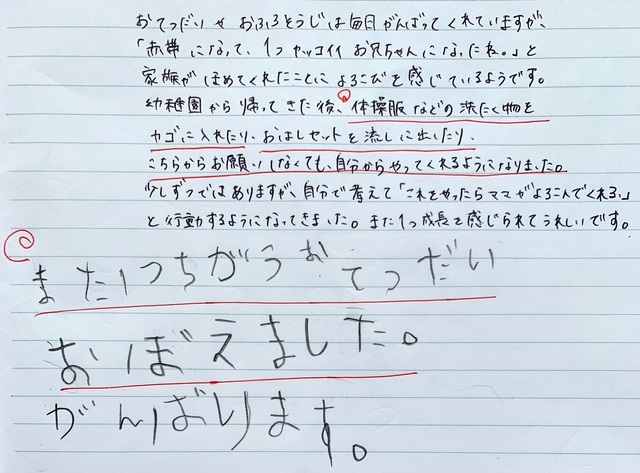 おてつだいや おふろそうじは毎日がんばってくれていますが、
「赤帯になって、1つカッコイイお兄ちゃんになったね。」と
家族がほめてくれたことによろこびを感じているようです。
幼稚園から帰ってきた後、体操服などの洗たく物を
カゴに入れたり、おはしセットを流しに出したり、
こちらからお願いしなくても、自分からやってくれるようになりました。
少しずつではありますが、自分で考えて「これをやったらママがよろこんでくれる。」
と行動するようになってきました。また1つ成長を感じられてうれしいです。
また1つちがうおてつだい
おぼえました。
がんばります。